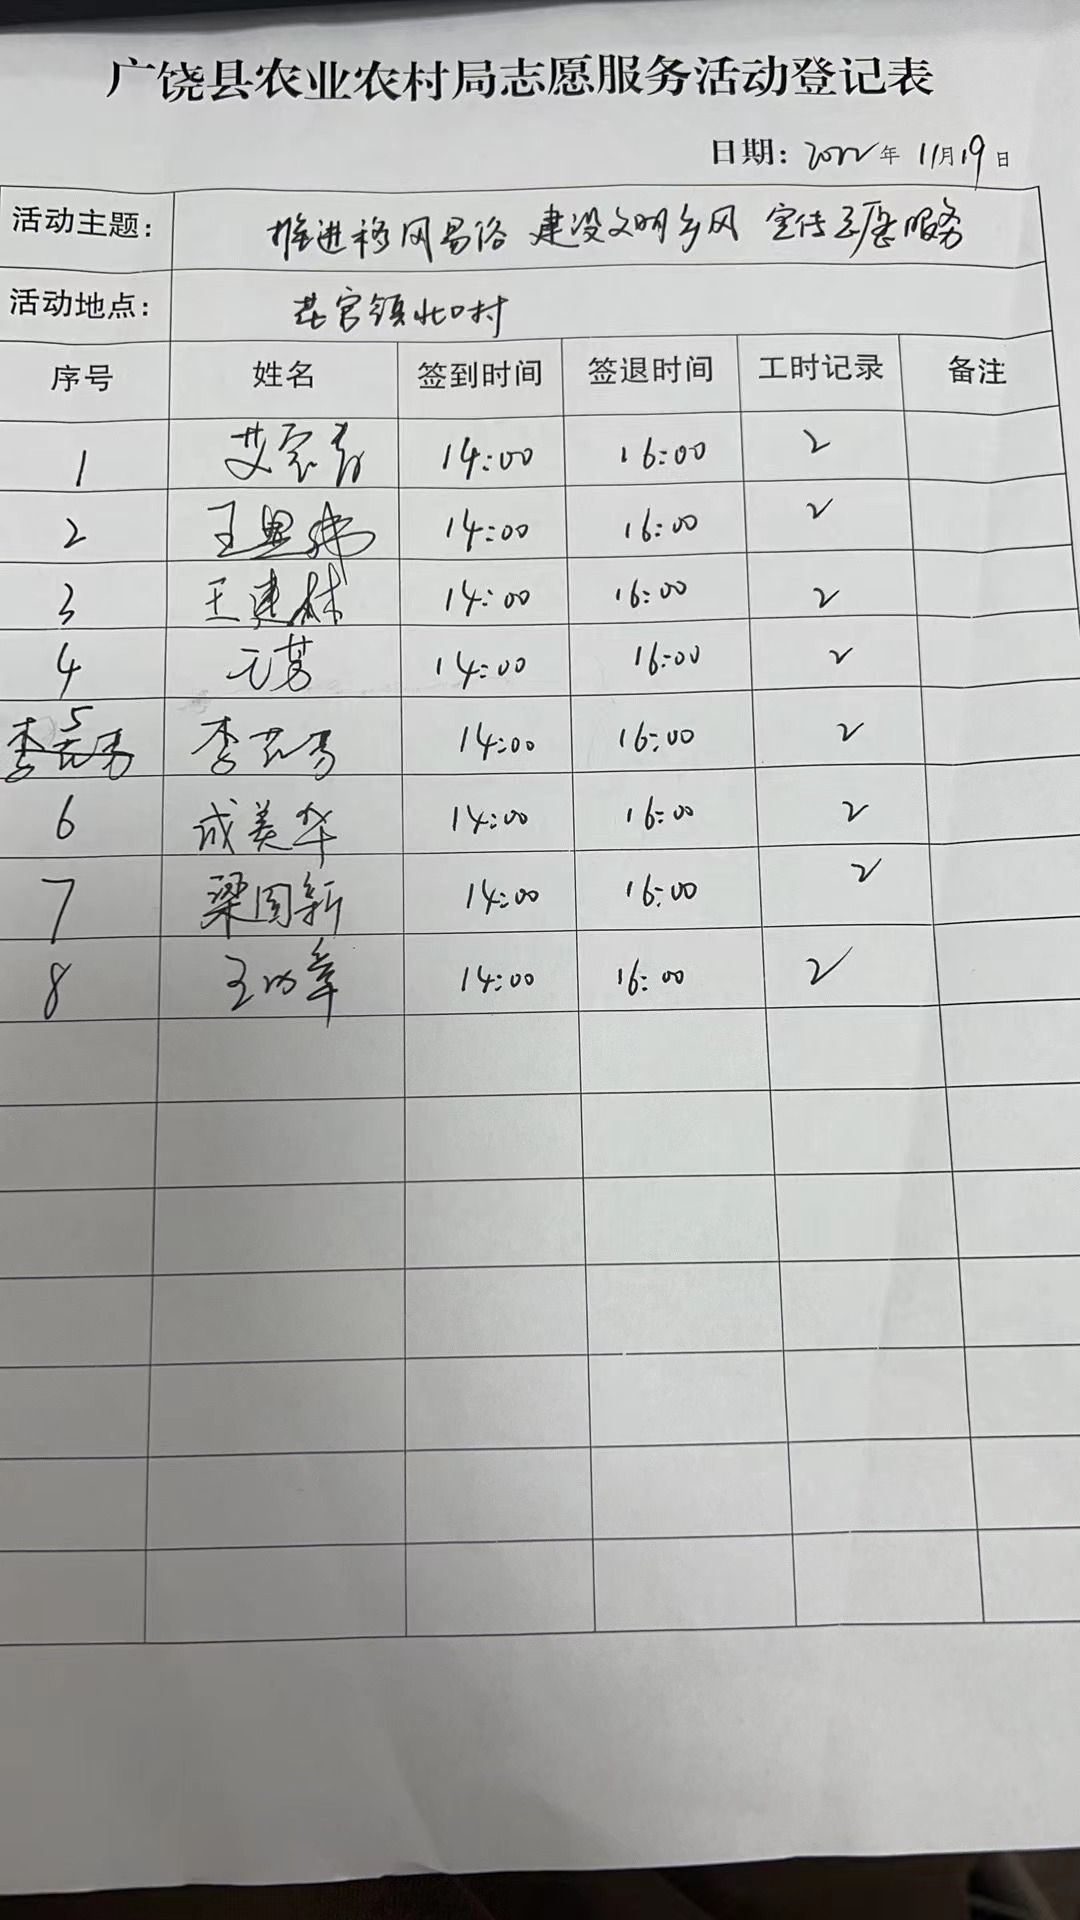 广饶县农业农村局志愿服务活动登记表
日期: 2022年 11月19日
活动主题: 推进移风易俗 建设文明乡风 宣传志愿服务
活动地点: 花官镇北口村
序号 姓名 签到时间 签退时间 工时记录 备注
1 艾家 14:00 16:00 2
2 王 14:00 16:00 2
3 王建林 14:00 16:00 2
4 芳 14:00 16:00 2
5 李 14:00 16:00 2
6 成美华 14:00 16:00 2
7 梁国新 14:00 16:00 2
8 王功章 14:00 16:00 2